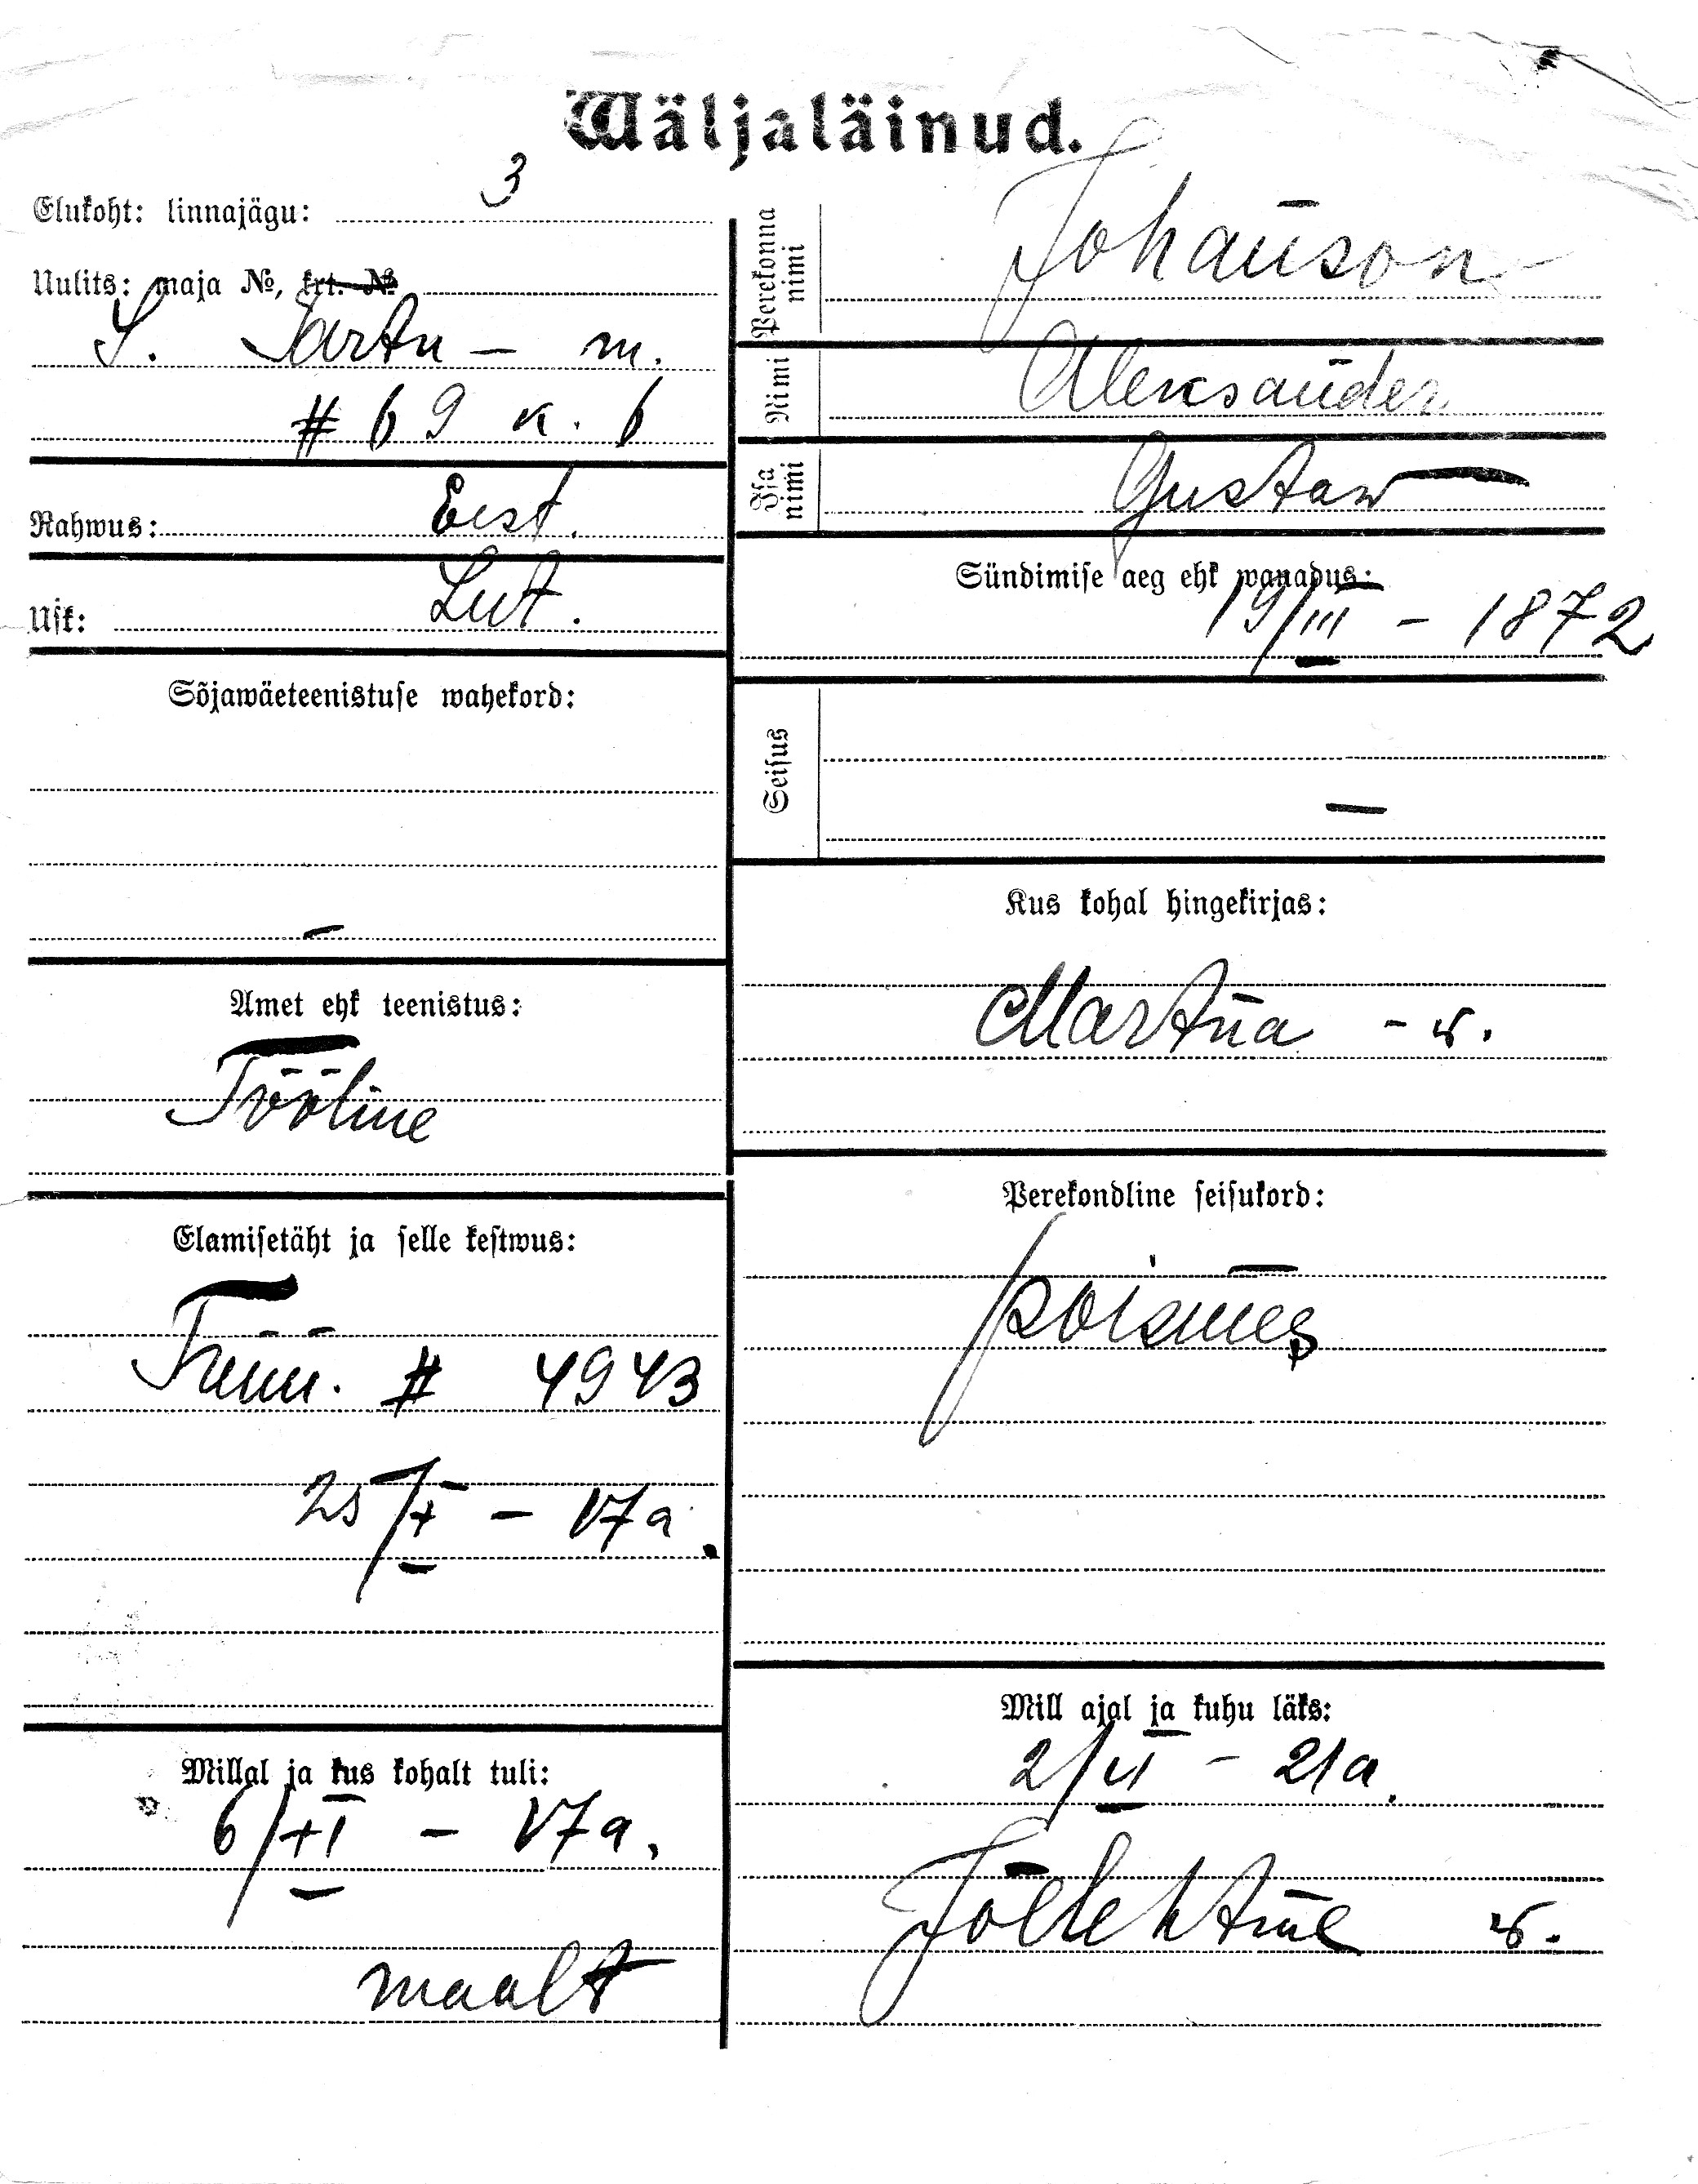 Wäljaläinud.
Elukoht: linnajägu: 3
Uulits: maja №, krt. №
S. Tartu - m.
# 69 k. 6
Rahwus: Eest.
Usk: Lut.
Sõjawäeteenistuse wahekord:
—
Amet ehk teenistus:
Tööline
Elamisetäht ja selle kestwus:
# 4943
25/X - 17 a.
Millal ja kus kohalt tuli:
6/XI - 17 a.
maalt
Perekonna nimi
Johanson
Nimi
Aleksander
Isa nimi
Gustaw
Sündimise aeg ehk wanadus:
19/III - 1872
Seisus
—
Kus kohal hingekirjas:
Martna - w.
Perekondline seisukord:
poismees
Mill ajal ja kuhu läks:
2/VI - 21 a.
w.